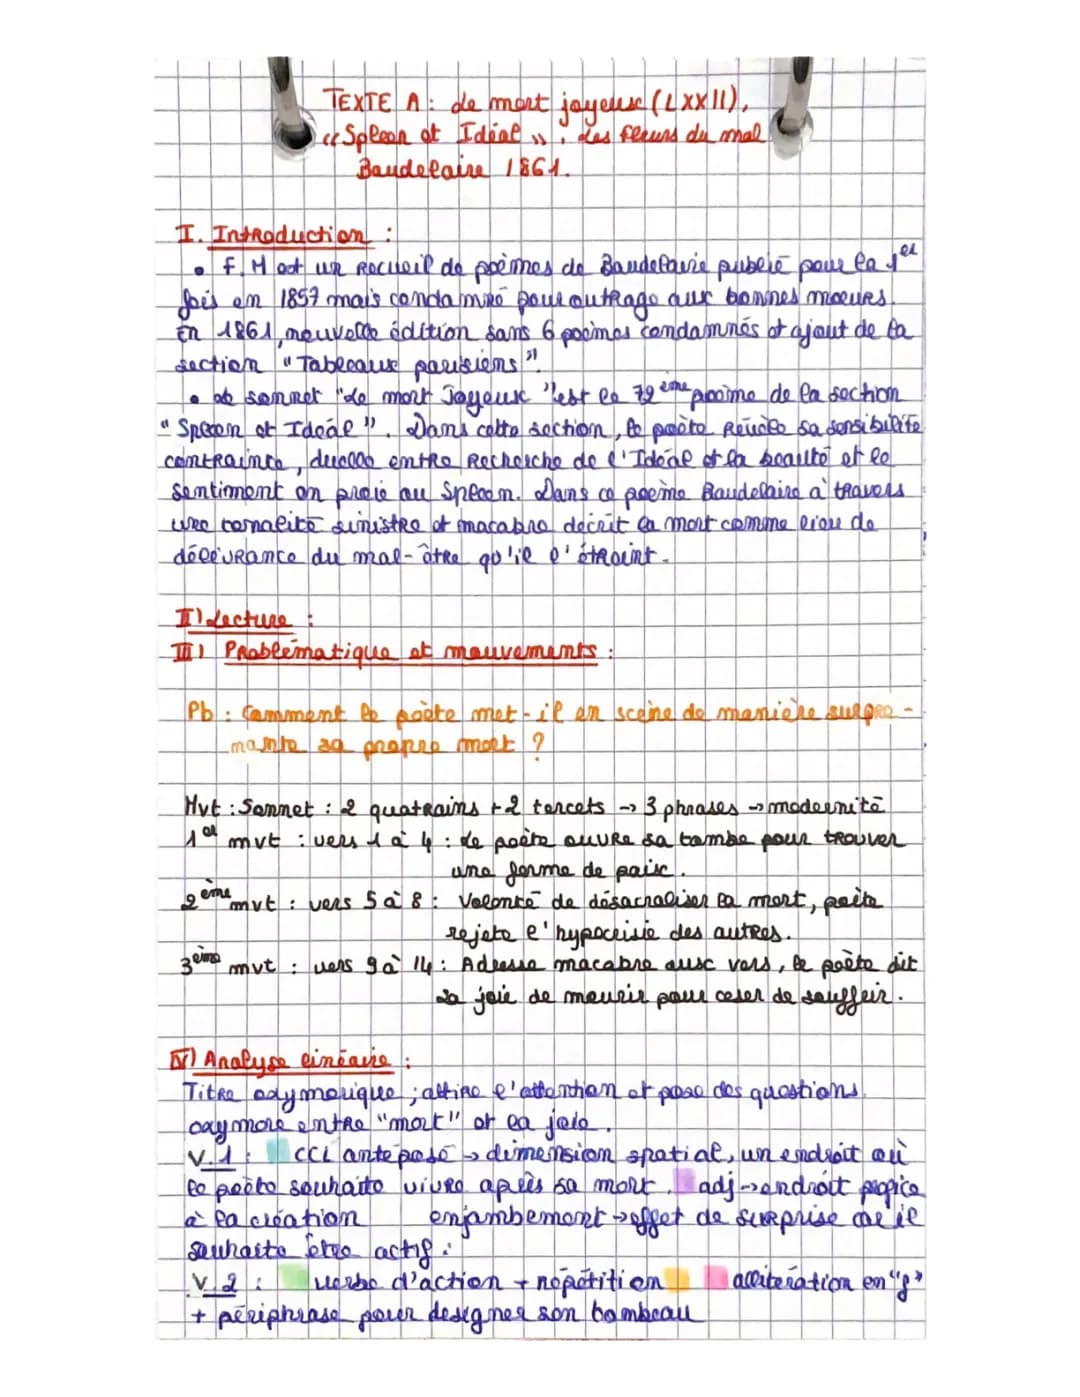 TEXTE A : Le mort joyeux (LXXII),
"Spleen et Idéal", Les fleurs du mal
Baudelaire 1861.
I. Introduction :
• F.M est un recueil de poèmes de Baudelaire publié pour la 1er
fois en 1857 mais condamné pour outrage aux bonnes moeurs.
En 1861, nouvelle édition sans 6 poèmes condamnés et ajout de la
section "Tableaux parisiens".
• Le sonnet "Le mort Joyeux" est le 72eme poème de la section
"Spleen et Idéal". Dans cette section, le poète révèle sa sensibilité
contrainte, duelle entre recherche de l'Idéal et la beauté et le
sentiment en proie au Spleen. Dans ce poème Baudelaire à travers
une tonalité sinistre et macabre décrit la mort comme lieu de
délivrance du mal-être qu'il l'étreint.
II) Lecture :
III) Problématique et mouvements :
Pb : Comment le poète met-il en scène de manière surpre-
nante sa propre mort ?
Mvt : Sonnet : 2 quatrains + 2 tercets → 3 phrases → modernité
1er mvt : vers 1 à 4 : Le poète ouvre sa tombe pour trouver
une forme de paix.
2ème mvt : vers 5 à 8 : Volonté de désacraliser la mort, poète
rejete l'hypocrisie des autres.
3ème mvt : vers 9 à 14 : Adresse macabre aux vers, le poète dit
sa joie de mourir pour cesser de souffrir.
IV) Analyse linéaire :
Titre oxymorique ; attire l'attention et pose des questions.
oxymore entre "mort" et la joie.
V.1 : CCL antéposé → dimension spatial, un endroit où
le poète souhaite vivre après sa mort. adj → endroit propice
à la création enjambement → effet de surprise car il
souhaite être actif.
V.2 : verbe d'action + répétition allitération en "f"
+ périphrase pour designer son tombeau